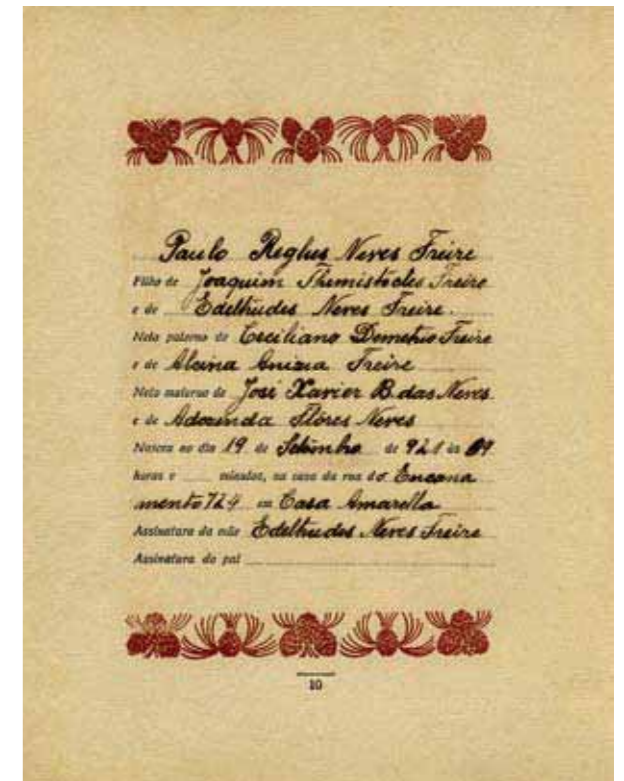 Paulo Reglus Neves Freire
Filho de Joaquim Themistocles Freire
e de Edelthudes Neves Freire.
Neto paterno de Demetrio Freire
e de Alcina Anizia Freire
Neto materno de José Xavier B. das Neves.
e de Adozinda Flôres Neves
Nasceu no dia 19 de Setembro de 921 ás 09
horas e minutos, na casa da rua do Encana
mento 724 em Casa Amarella
Assinatura da mãe Edelthudes Neves Freire
Assinatura do pai
10